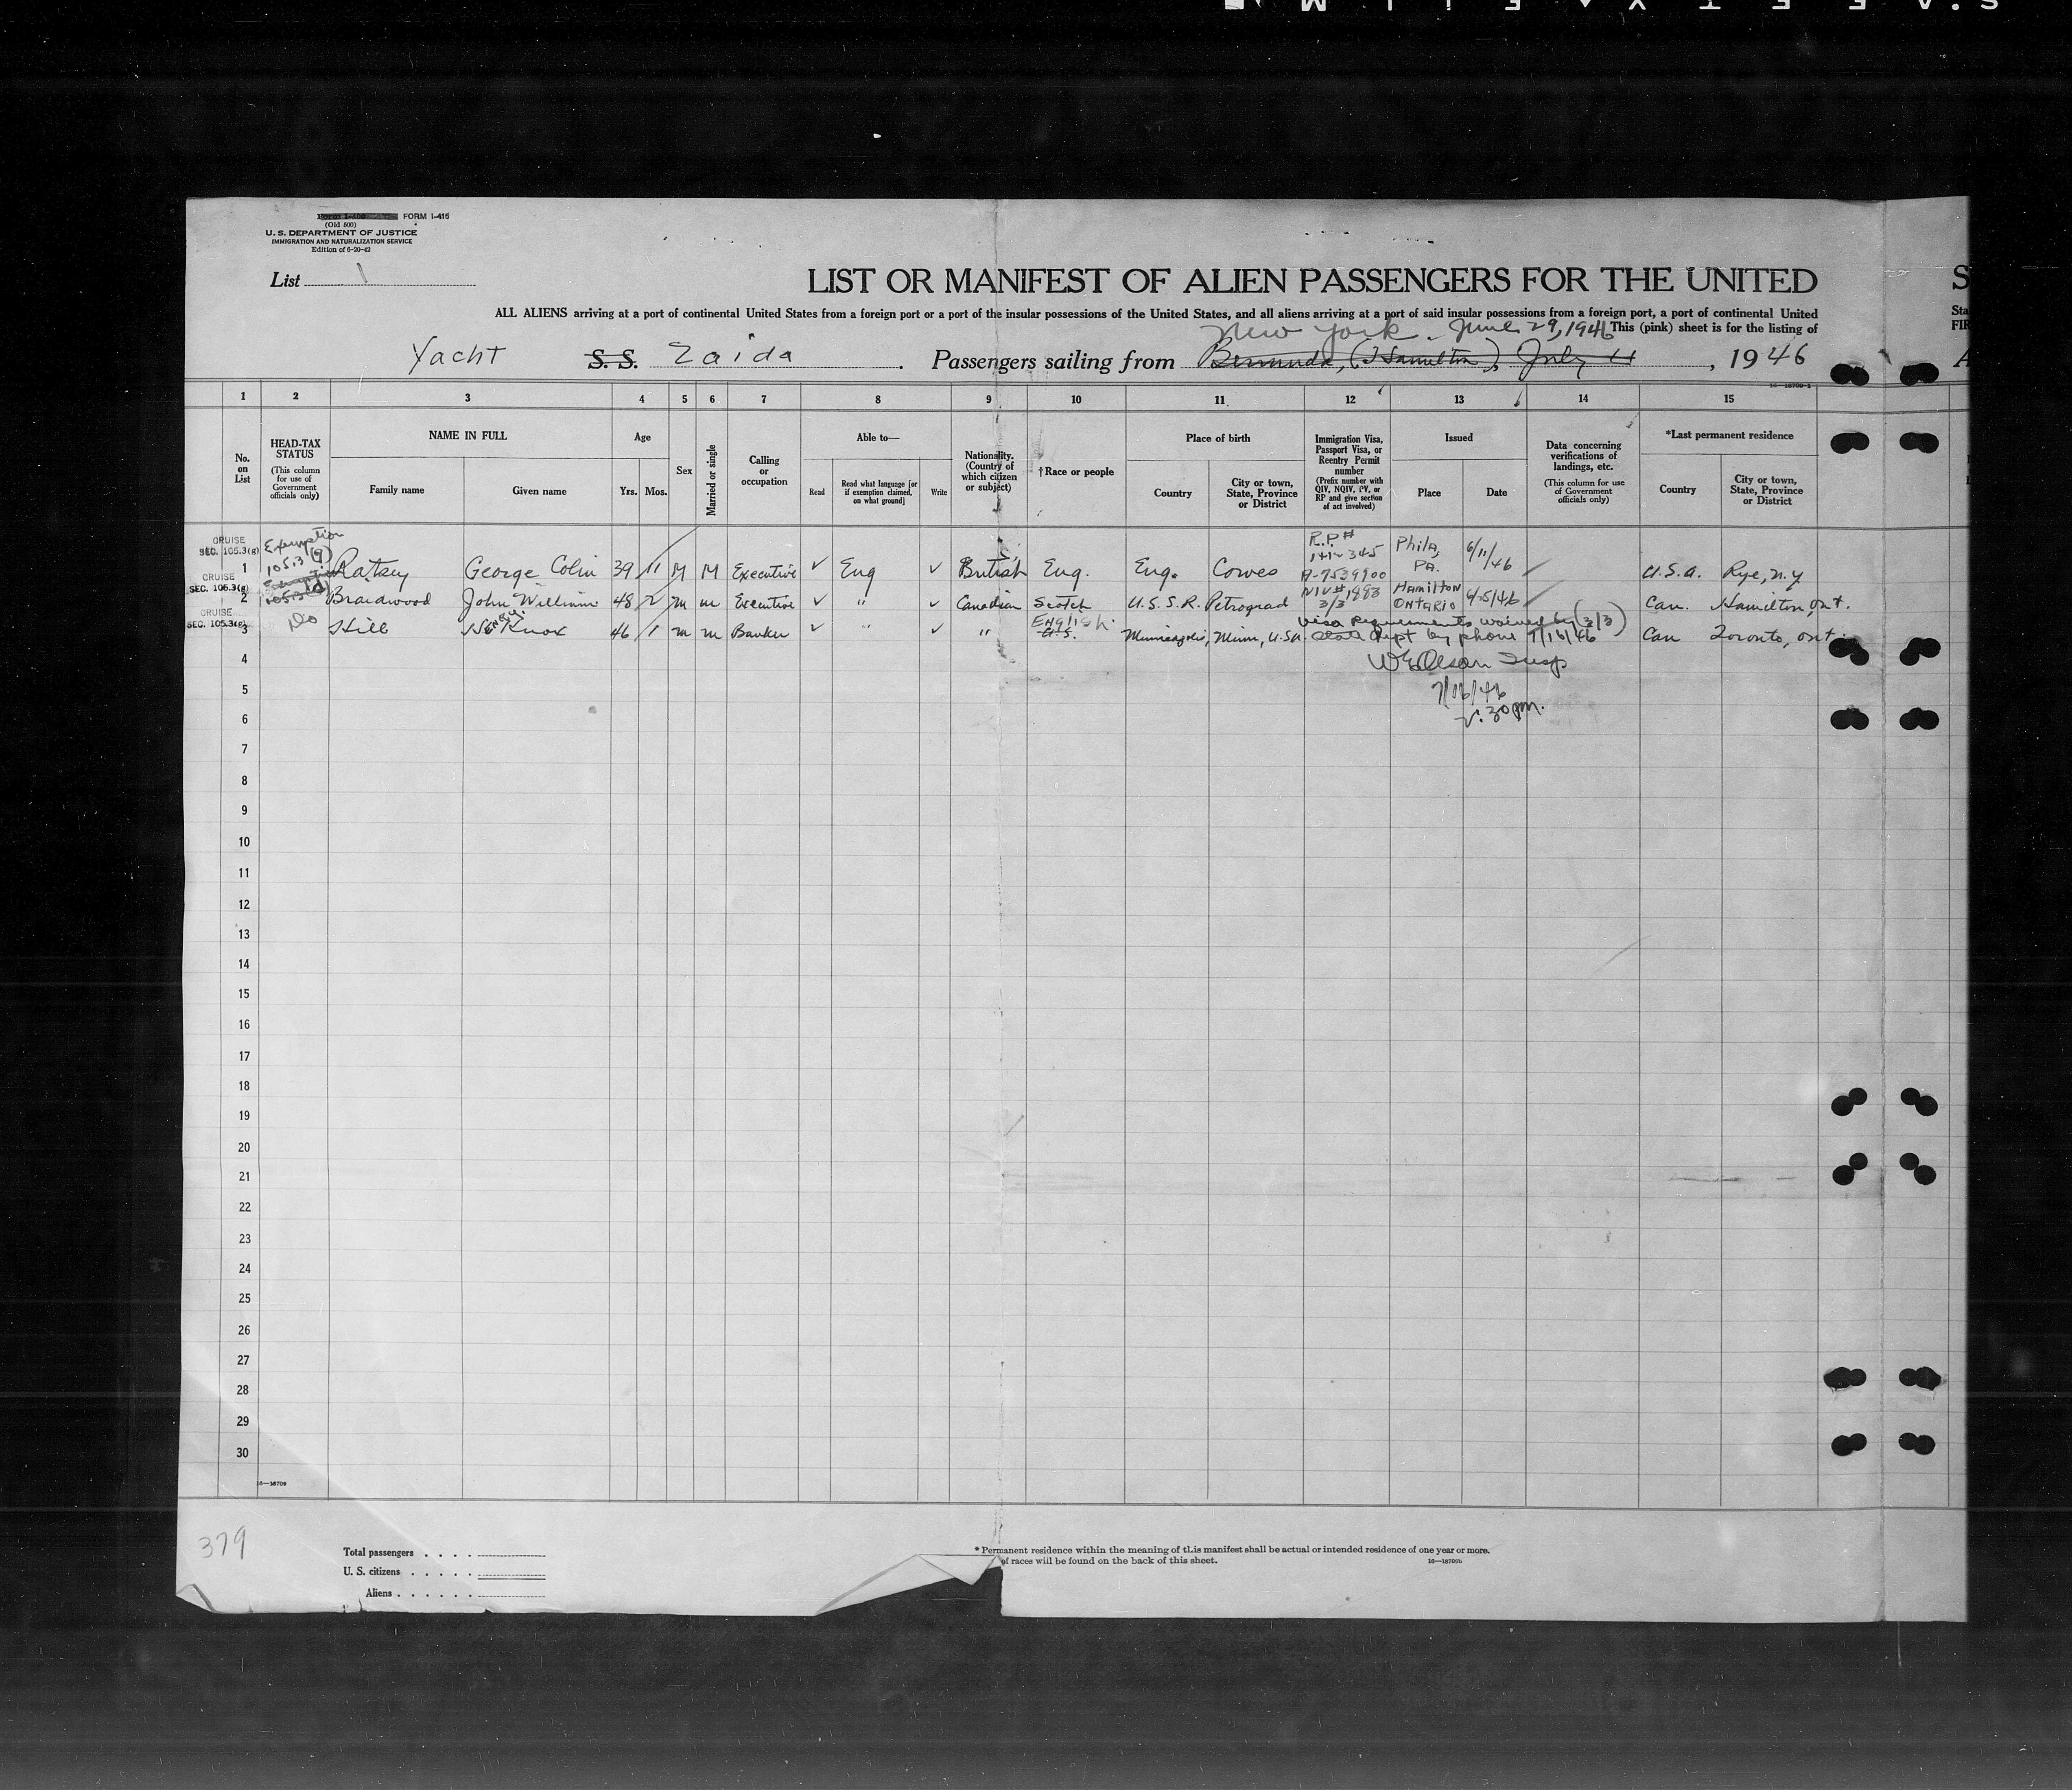 FORM I-415
(Old 500)
U. S. DEPARTMENT OF JUSTICE
IMMIGRATION AND NATURALIZATION SERVICE
Edition of 6-20-42
List 1
LIST OR MANIFEST OF ALIEN PASSENGERS FOR THE UNITED
ALL ALIENS arriving at a port of continental United States from a foreign port or a port of the insular possessions of the United States, and all aliens arriving at a port of said insular possessions from a foreign port, a port of continental United
New York. June 29, 1946 This (pink) sheet is for the listing of
Yacht S. S. Zaida. Passengers sailing from Bermuda, (Hamilton), July 11, 1946
16-18709-1
1 2 3 4 5 6 7 8 9 10 11 12 13 14 15
No. on List
HEAD-TAX STATUS
(This column for use of Government officials only)
NAME IN FULL
Family name
Given name
Age
Yrs. Mos.
Sex
Married or single
Calling or occupation
Able to—
Read
Read what language [or if exemption claimed, on what ground]
Write
Nationality. (Country of which citizen or subject)
†Race or people
Place of birth
Country
City or town, State, Province or District
Immigration Visa, Passport Visa, or Reentry Permit number
(Prefix number with QIV, NQIV, PV, or RP and give section of act involved)
Issued
Place
Date
Data concerning verifications of landings, etc.
(This column for use of Government officials only)
*Last permanent residence
Country
City or town, State, Province or District
CRUISE SEC. 105.3(g) 1 Exemption 105.3(g) Ratsey George Colin 39 11 M M Executive ✓ Eng ✓ British Eng. Eng. Cowes R.P.# 1412345 A-7539900 Phila, PA. 6/11/46 U.S.A. Rye, N.Y
CRUISE SEC. 105.3(g) 2 Braidwood John William 48 2 m m Executive ✓ " ✓ Canadian Scotch U.S.S.R. Petrograd NIV# 1883 3/3 Hamilton ONTARIO 4/25/46 Can. Hamilton, Ont.
CRUISE SEC. 105.3(g) 3 Do Hill Henry Knox 46 1 m m Banker ✓ " ✓ " English U.S. Minneapolis, Minn, U.S.A. Visa Requirements waived by (3/3) State Dept by phone 7/16/46 Can Toronto, Ont.
4 W E Olson Insp
5 7/16/46
6 2:30 pm.
7
8
9
10
11
12
13
14
15
16
17
18
19
20
21
22
23
24
25
26
27
28
29
30
16—18709
379
Total passengers
U. S. citizens
Aliens
* Permanent residence within the meaning of this manifest shall be actual or intended residence of one year or more.
of races will be found on the back of this sheet.
16—18709b